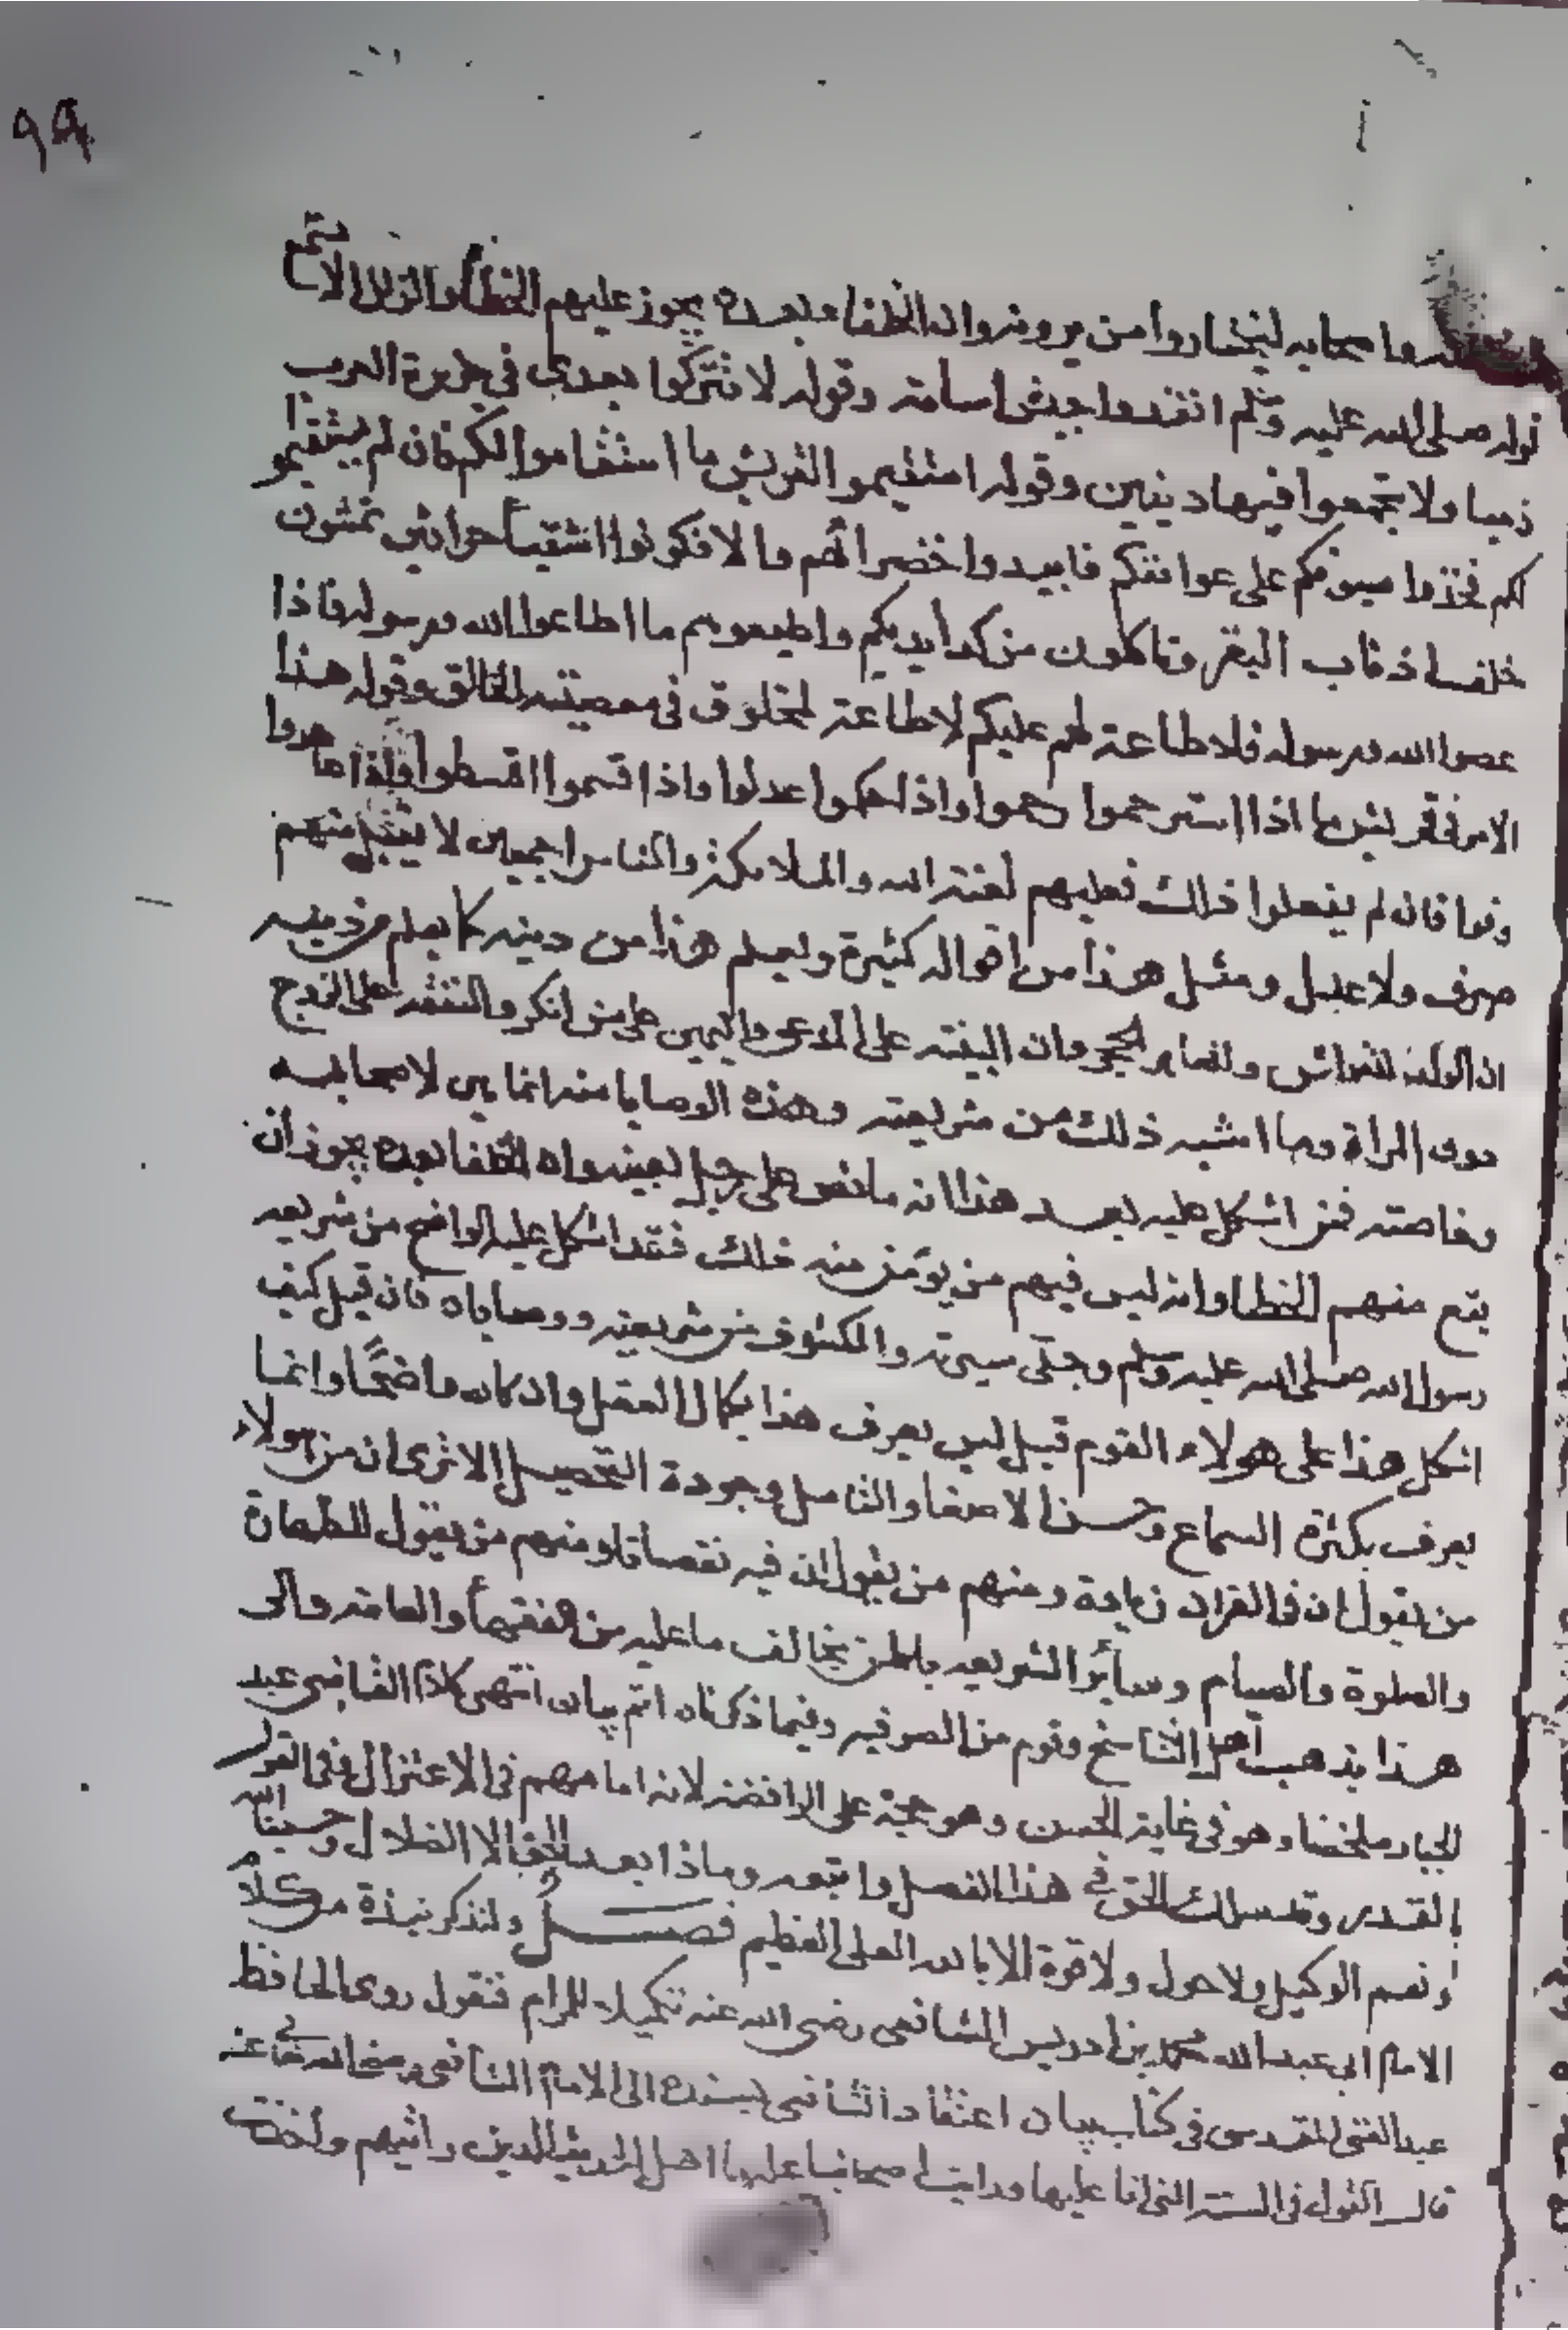 ٩٩
اصحابه ليختاروا من يرونه وان الخلفا بعده يجوز عليهم الخطأ والزلل الا تسمع
قوله صلى الله عليه وسلم انفذوا جيش اسامة وقوله لا تتركوا بعدي في جزيرة العرب
ذميا ولا تجمعوا فيها دينين وقوله استقيموا لقريش ما استقاموا لكم فان لم يستقيموا
لكم فخذوا سيوفكم على عواتقكم فابيدوا خضراهم والا فكونوا اشقيأ حراثين تمشون
خلف اذناب البقر وتاكلون من كد أيديكم واطيعوهم ما اطاعوا الله ورسوله فاذا
عصوا الله ورسوله فلا طاعة لهم عليكم لا طاعة لمخلوق في معصيته الخالق وقوله هذا
الامر في قريش ما اذا استرحموا رحموا واذا حكموا عدلوا واذا قسموا اقسطوا واذا عاهدوا
وفوا فان لم يفعلوا ذلك فعليهم لعنة الله والملائكة والناس اجمعين لا يقبل منهم
صرف ولا عدل ومثل هذا من اقواله كثيرة ويعلم هذا من دينه كما يعلم من دينه
ان الولد للفراش وللعاهر الحجر وان البينة على المدعي واليمين على من انكر والنفقة على الزوج
دون المراة وما اشبه ذلك من شريعته وهذه الوصايا منه انما هي لاصحابه
وخاصته فمن اشكل عليه بعد هذا انه ما نص على رجل بعينه وان الخلفا بعده يجوز أن
يقع منهم الخطا وانه ليس فيهم من يؤمن منه ذلك فقد اشكل عليه الواضح من شريعه
رسول الله صلى الله عليه وسلم وجلى سيرته والمكشوف من شريعته ووصاياه فان قيل كيف
اشكل هذا على هولاء القوم قيل ليس يعرف هذا بكمال العقل وان كان واضحًا وانما
يعرف بكثرة السماع وحسن الاصغا والتامل وجودة التحصيل الا ترى ان من هولاء
من يقول ان في القران زيادة ومنهم من يقول ان فيه نقصانا ومنهم من يقول للطهارة
والصلوة والصيام وسائر الشريعه باطن يخالف ما عليه من الفقهأ والعامة والى
هذا يذهب اهل التناسخ وقوم من الصوفيه وفيما ذكرناه اتم بيان انتهى كلام القاضي عبد
الجبار ملخصا وهو في غاية الحسن وهو حجة على الرافضة لانه امامهم في الاعتزال في القول
بالقدر وقد سلك الحق في هذا الفصل واتبعه وماذا بعد الحق الا الضلال وحسبنا الله
ونعم الوكيل ولا حول ولا قوة الا بالله العلى العظيم فصل ولنذكر نبذة من كلام
الامام ابي عبد الله محمد بن ادريس الشافعي رضي الله عنه تكميلا للمرام فنقول روى الحافظ
عبد الغني المقدسي في كتاب بيان اعتقاد الشافعي بسنده الى الامام الشافعي رضي الله تعالى عنه
قال القول في السنة التي انا عليها ورايت اصحابنا عليها اهل الحديث الذين رائيهم واخذت